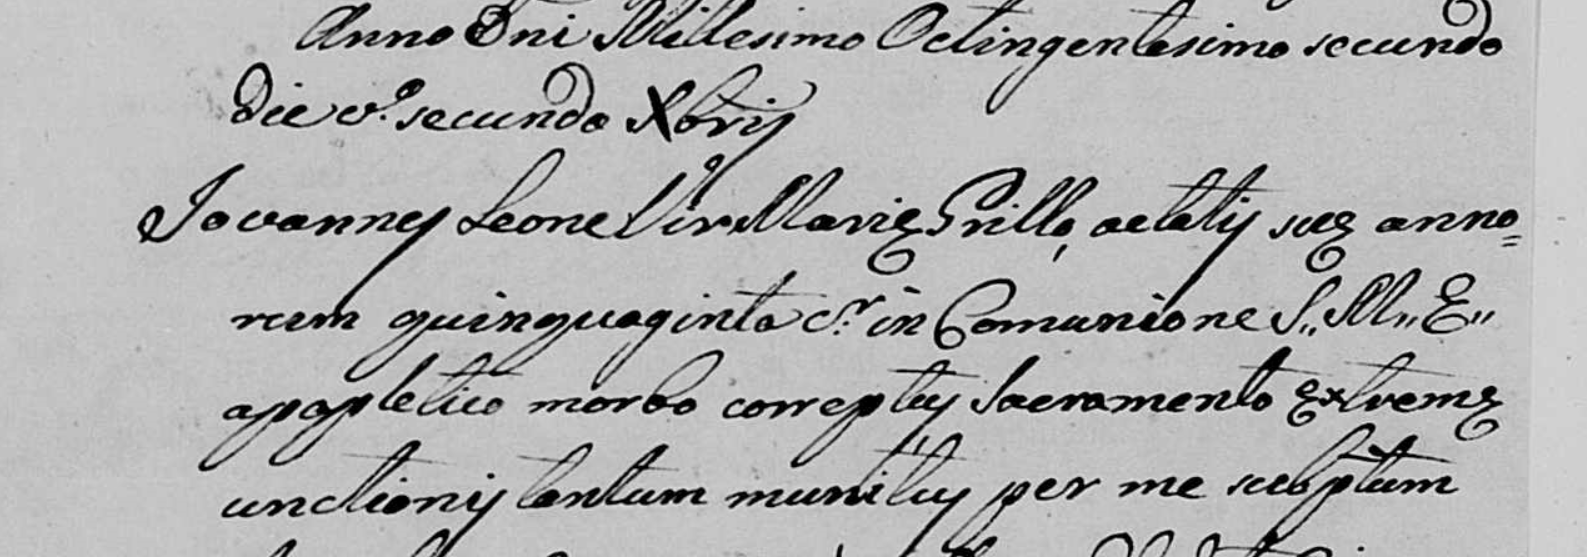 Anno Dni Millesimo Octingentesimo secundo
Die vº secundo Xbris
Jovannes Leone Vir Mariæ Grillo, aetatis suæ anno=
rum quinquaginta cr in Comunione S,, M,, E,,
apopletico morbo correptus Sacramento Extremæ
unctionis tantum munitus per me subptum